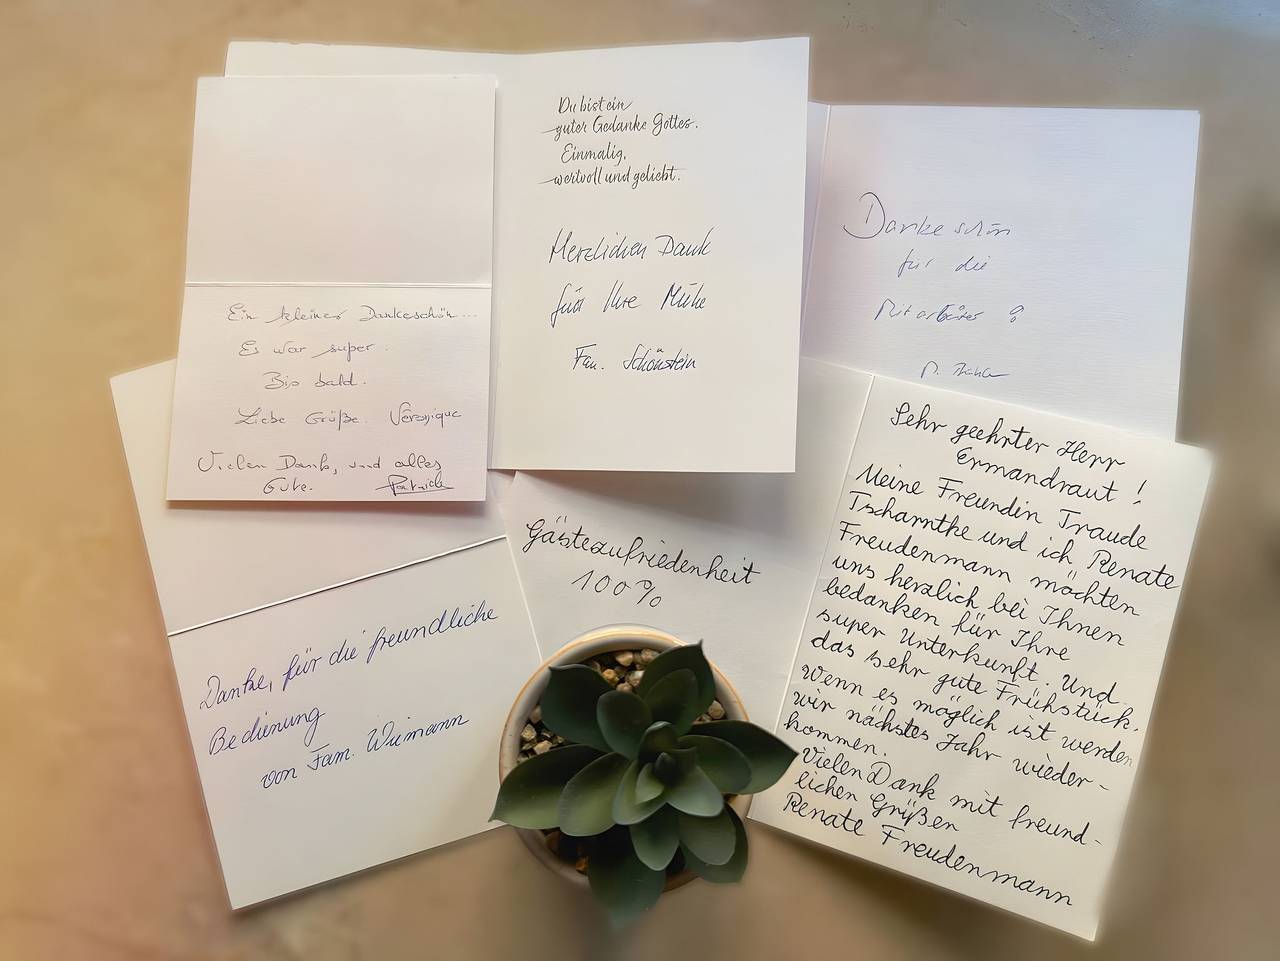 Du bist ein
guter Gedanke Gottes.
Einmalig,
wertvoll und geliebt.
Herzlichen Dank
für Ihre Mühe
Fam. Schönstein
Dankeschön
für die
Mitarbeiter
Ein kleines Dankeschön...
Es war super.
Bis bald.
Liebe Grüße. Véronique
Vielen Dank, und alles
Gute. Patrick
Danke, für die freundliche
Bedienung
von Fam. Wiemann
Gästezufriedenheit
100%
Sehr geehrter Herr
Ermandraut!
Meine Freundin Traude
Tscharntke und ich Renate
Freudenmann möchten
uns herzlich bei Ihnen
bedanken für Ihre
super Unterkunft. Und
das sehr gute Frühstück.
Wenn es möglich ist werden
wir nächstes Jahr wieder-
kommen.
Vielen Dank mit freund-
lichen Grüßen
Renate Freudenmann